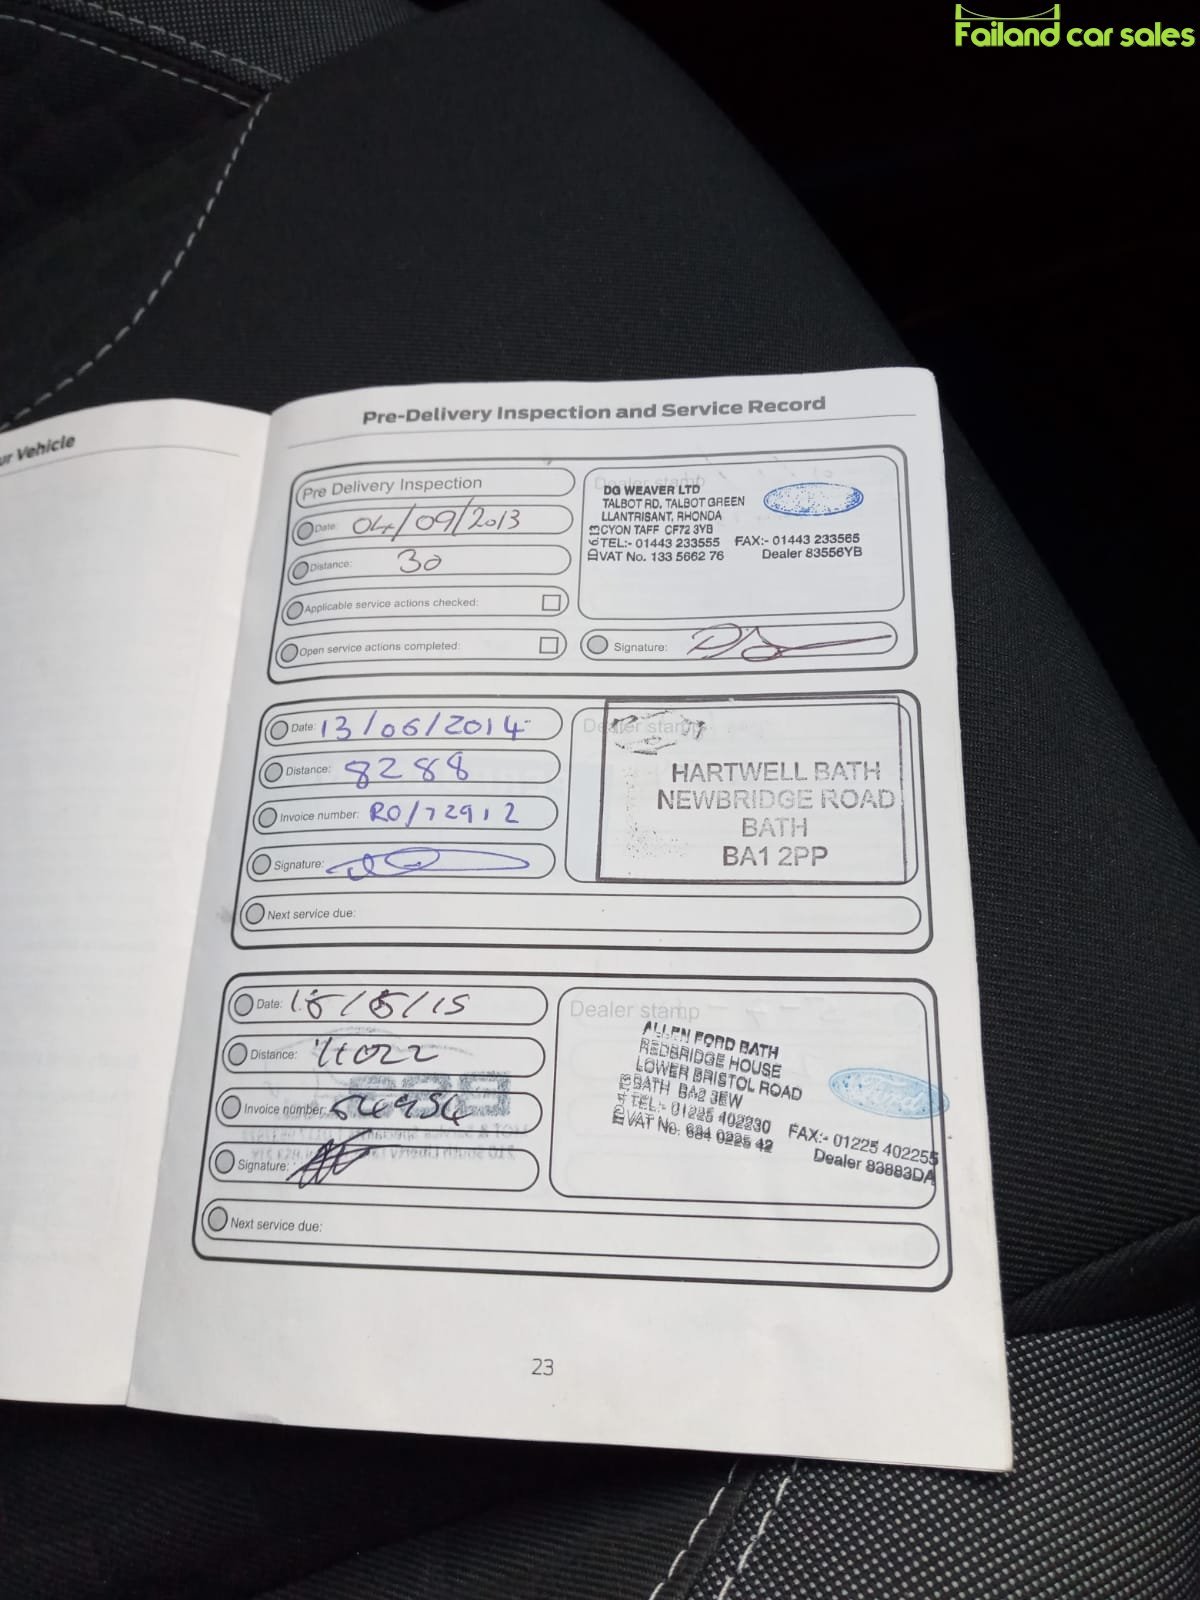 Failand car sales
ur Vehicle
Pre-Delivery Inspection and Service Record
Pre Delivery Inspection
Date: 04/09/2013
Distance: 30
Applicable service actions checked:
Open service actions completed:
Dealer stamp
DG WEAVER LTD
TALBOT RD, TALBOT GREEN
LLANTRISANT, RHONDA
CYON TAFF CF72 3YB
TEL:- 01443 233555 FAX:- 01443 233565
VAT No. 133 5662 76 Dealer 83556YB
Signature:
Date: 13/06/2014
Distance: 8288
Invoice number: RO/72912
Signature:
Dealer stamp
HARTWELL BATH
NEWBRIDGE ROAD
BATH
BA1 2PP
Next service due:
Date: 15/5/15
Distance:
Invoice number:
Signature:
Dealer stamp
ALLEN FORD BATH
REDBRIDGE HOUSE
LOWER BRISTOL ROAD
BATH BA2 3EW
TEL:- 01225 402230 FAX:- 01225 402255
VAT No. 684 0225 42 Dealer 83883DA
Ford
Next service due:
23